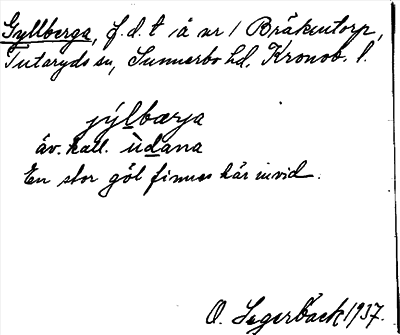 Gyllberga, f.d. t. å nr 1 Bråkentorp,
Tutaryds sn, Sunnerbo hd, Kronob. l.
jy̌lbærja
äv. kall. ùdana
En stor göl finnes här invid.
O. Segerbäck 1937.